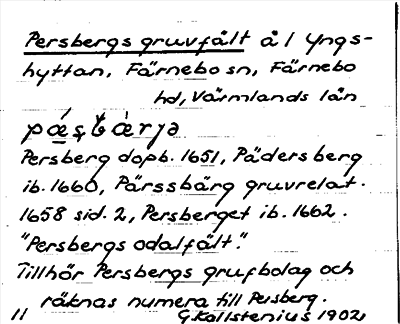 Persbergs gruvfält å l Yngs-
hyttan, Färnebo sn, Färnebo
hd, Värmlands län
pǽṣbàrja
Persberg dopb. 1651, Päders berg
ib. 1660, Pärssbärg gruvrelat.
1658 sid. 2, Persberget ib. 1662.
"Persbergs odalfält".
Tillhör Persbergs grufbolag och
räknas numera till Persberg.
11 G. Kallstenius 1902